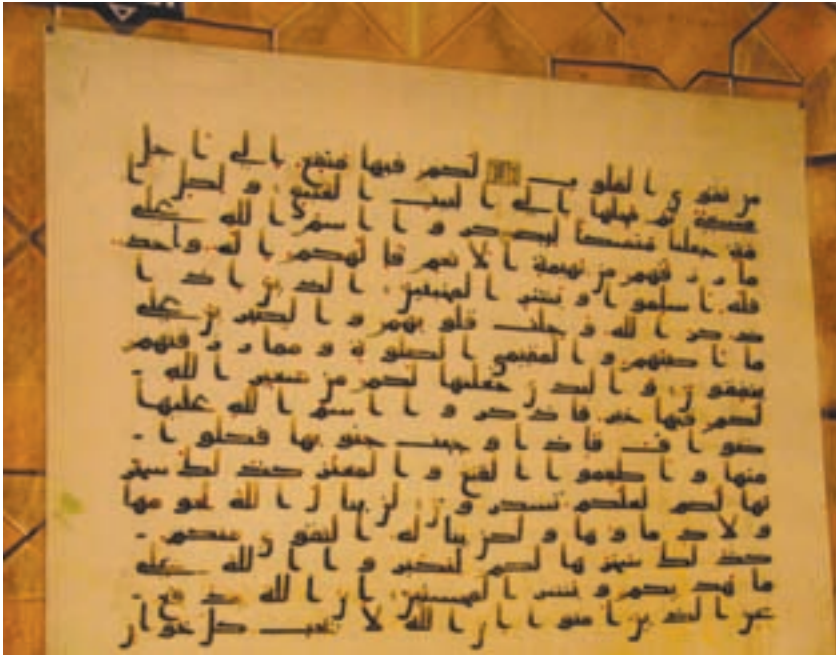 من تقوى القلوب لكم فيها منفع الى اجل
مسمى ثم محلها الى البيت العتيق ولكل ا
مة جعلنا منسكا ليذكروا اسم الله على
ما رزقهم من بهيمة الانعم فالهكم اله واحد
فله اسلموا وبشر المخبتين الذين اذا
ذكر الله وجلت قلوبهم والصبرين على
ما اصبهم والمقيمي الصلوة ومما رزقنهم
ينفقون والبدن جعلنها لكم من شعير الله
لكم فيها خير فاذكروا اسم الله عليها
صواف فاذا وجبت جنوبها فكلوا
منها واطعموا القنع والمعتر كذلك سخر
نها لكم لعلكم تشكرون لن ينال الله لحومها
ولا دماوها ولكن يناله التقوى منكم
كذلك سخرها لكم لتكبروا الله على
ما هديكم وبشر المحسنين ان الله يدفع
عن الذين امنوا ان الله لا يحب كل خوان